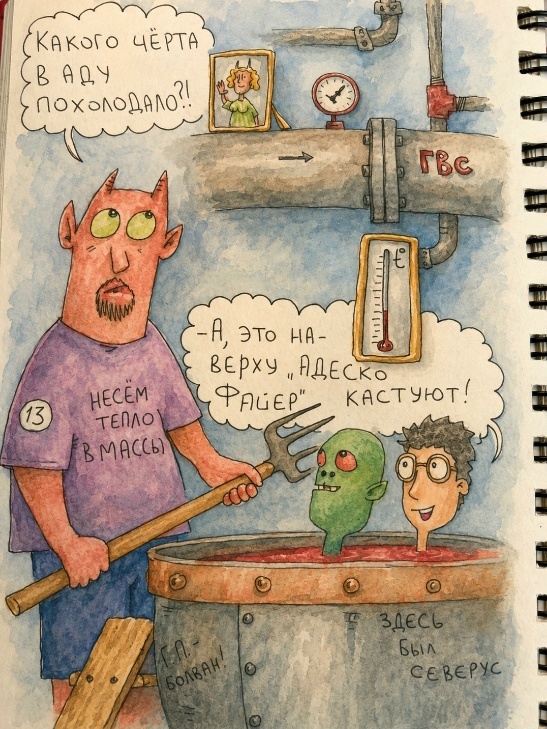 КАКОГО ЧЁРТА
В АДУ
ПОХОЛОДАЛО?!
ГВС
t°
-А, ЭТО НА-
ВЕРХУ „АДЕСКО
ФАЙЕР" КАСТУЮТ!
13
НЕСЁМ
ТЕПЛО
В МАССЫ
Г.П.-
БОЛВАН!
ЗДЕСЬ
БЫЛ
СЕВЕРУС